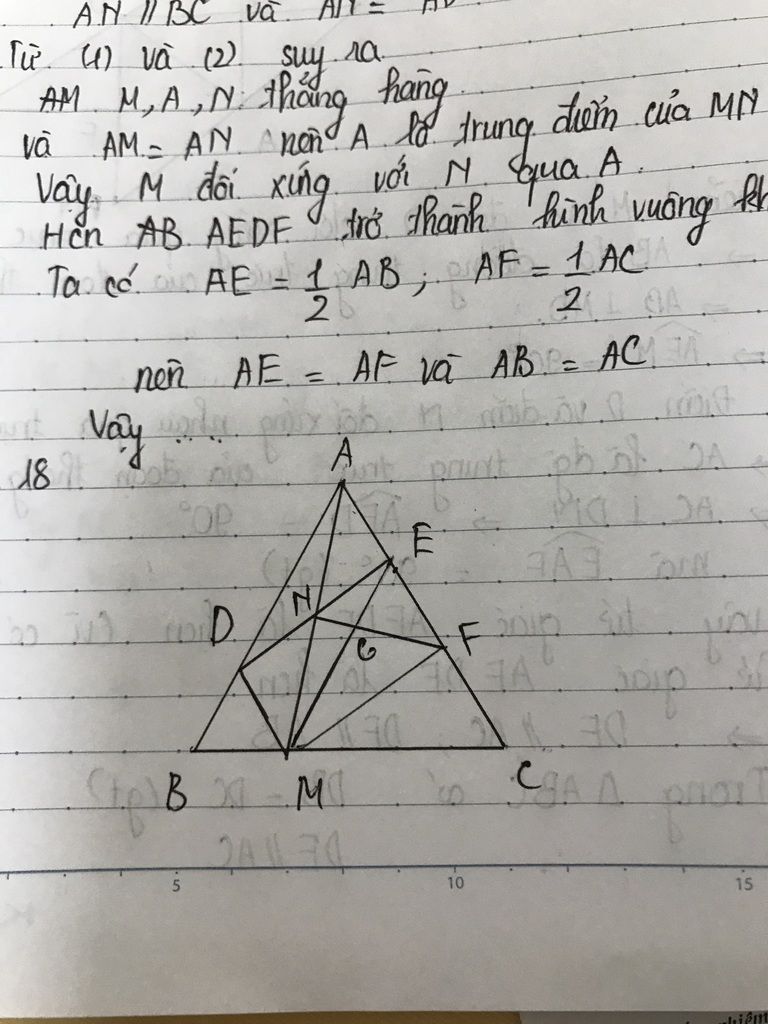 AN // BC và
Từ (1) và (2) suy ra
AM M, A, N thẳng hàng
và AM = AN nên A là trung điểm của MN
Vậy M đối xứng với N qua A.
Hcn AB AEDF trở thành hình vuông kh
Ta có AE = 1/2 AB ; AF = 1/2 AC
nên AE = AF và AB = AC
Vậy ...
18
A
E
N
D
F
G
B
M
C
5 10 15